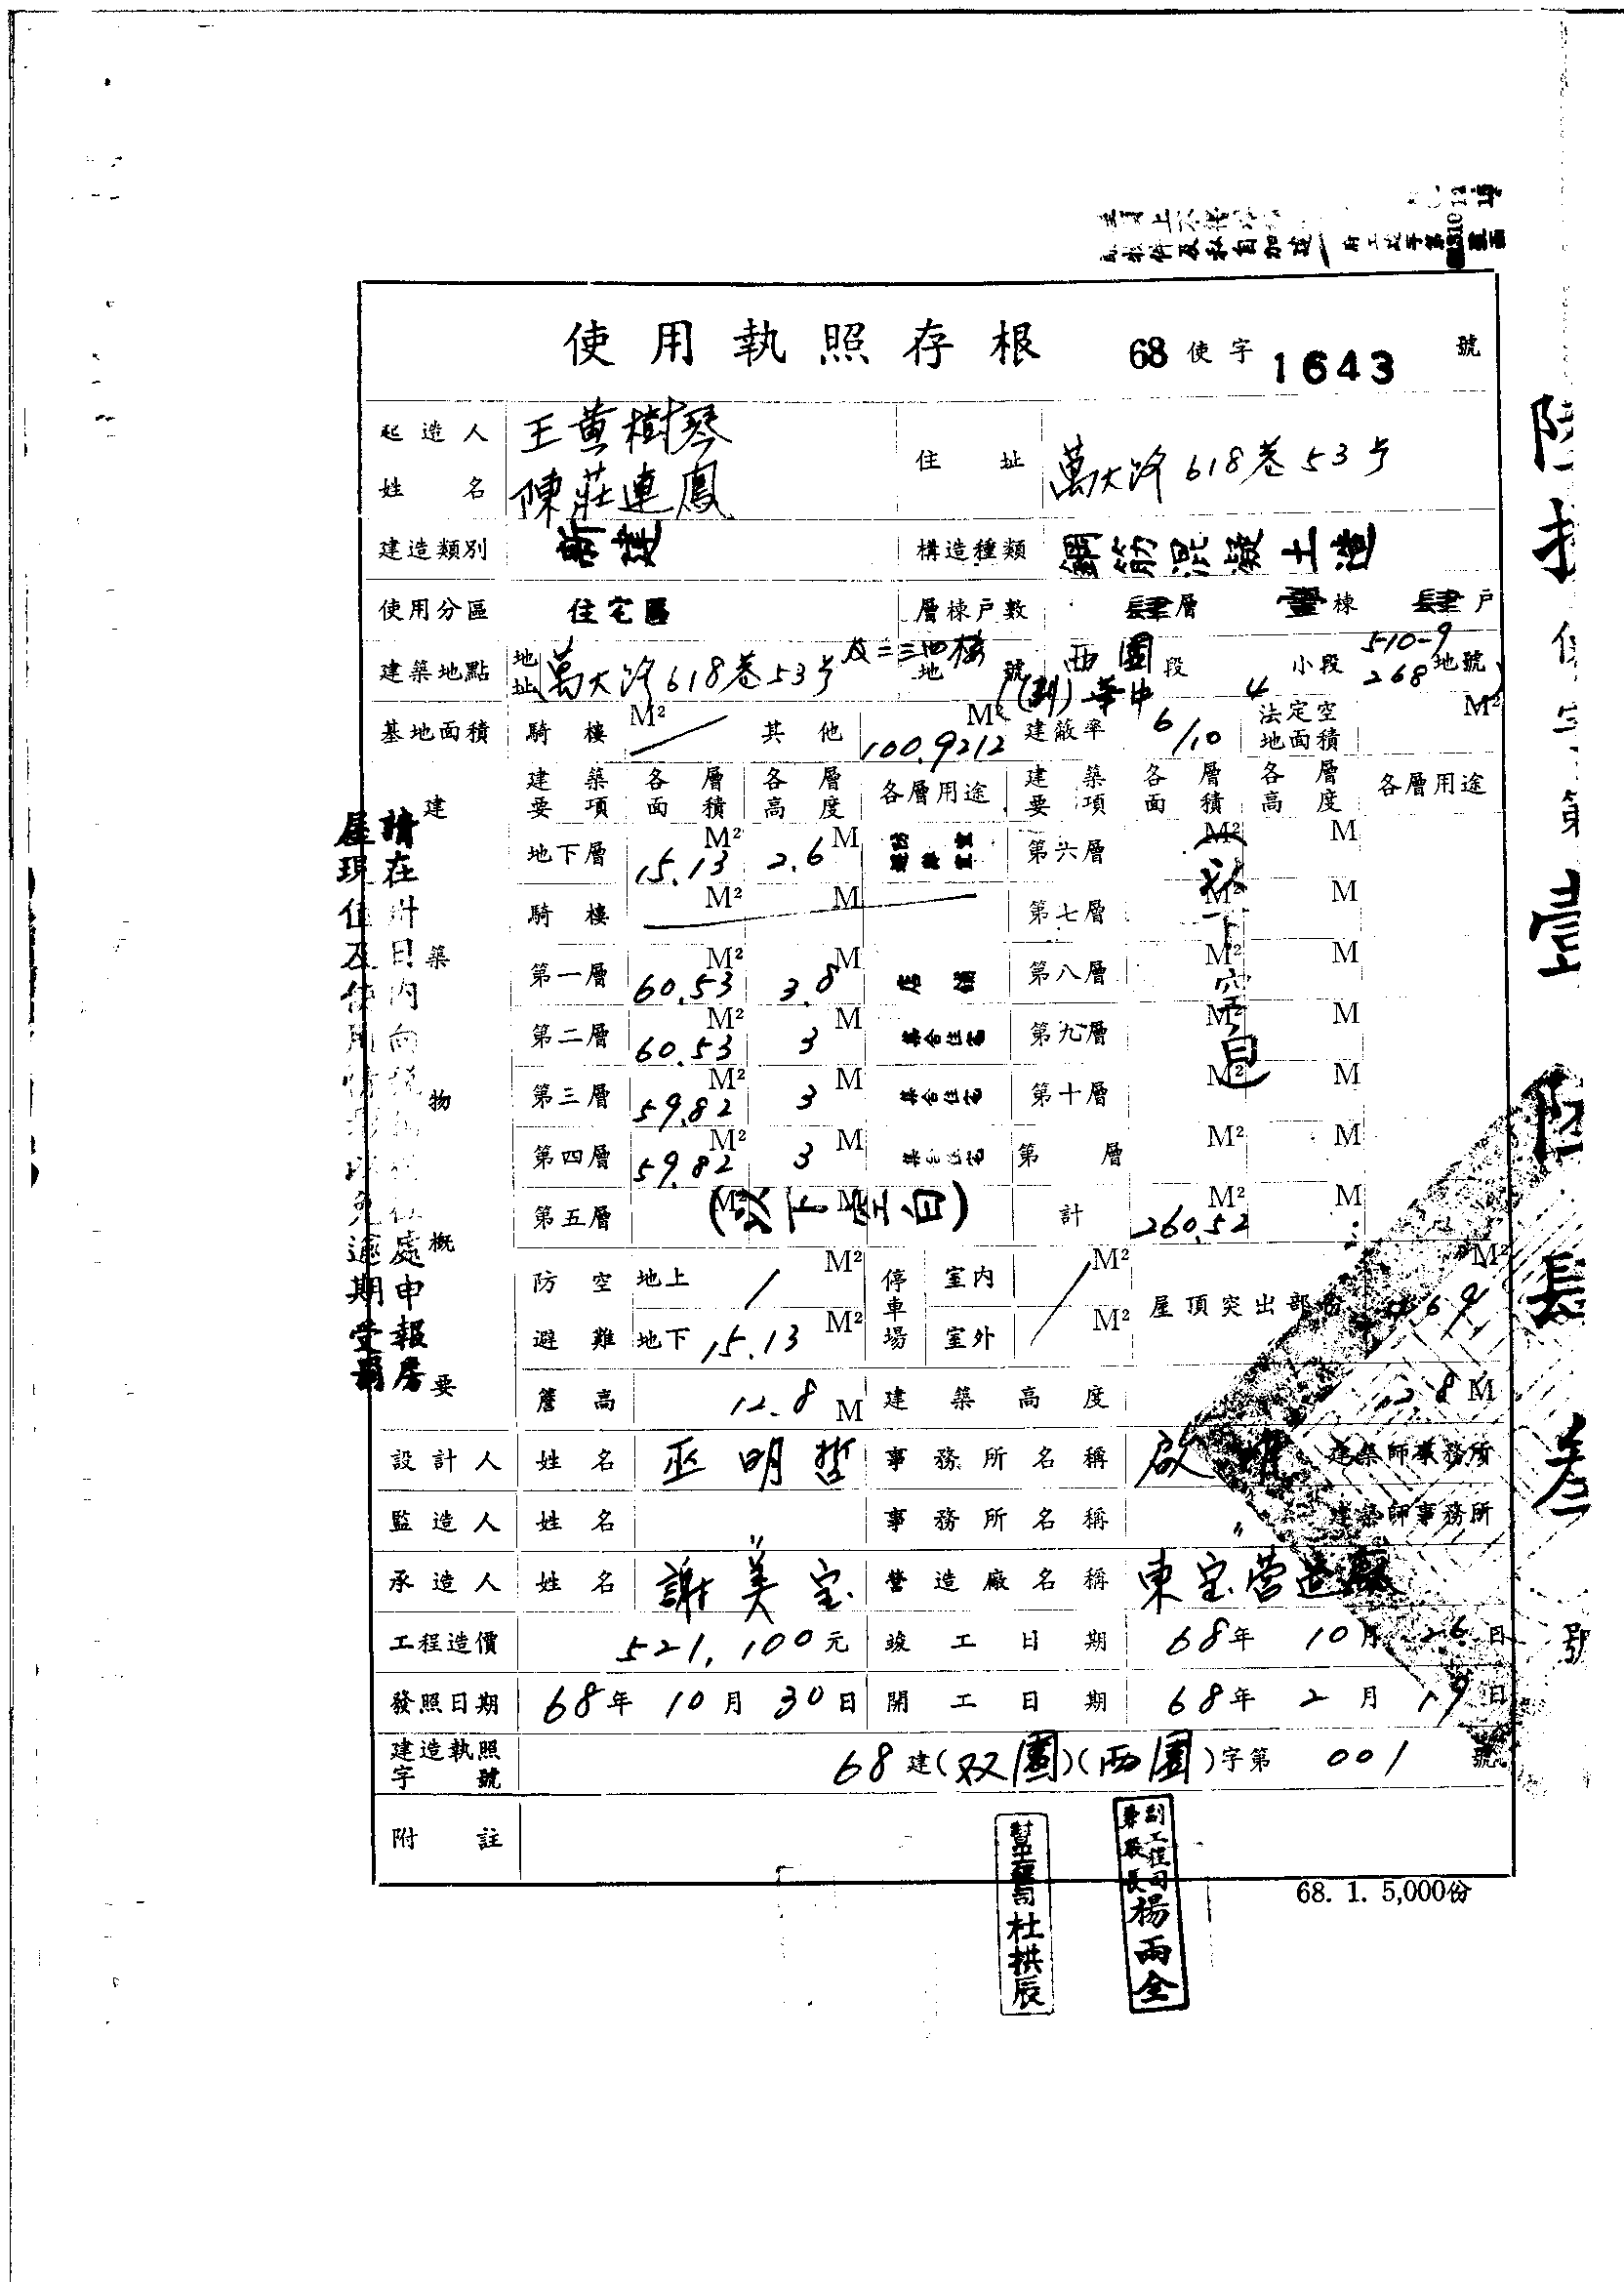 使用執照存根 68使字 1643 號
起造人姓名 王黄樹琴 陳莊連鳳 住址 萬大路618巷53号
建造類別 新建 構造種類 鋼筋混凝土造
使用分區 住宅區 層棟戶數 肆層 壹棟 肆戶
建築地點 地址 萬大路618巷53号及二三四樓 地號 西園段 小段 510-9 地號
(劃)華中 4 268
基地面積 騎樓 M² 其他 100.9212 M² 建蔽率 6/10 法定空地面積 M²
建築物概要
建築要項 各層面積 各層高度 各層用途 建築要項 各層面積 各層高度 各層用途
地下層 15.13 M² 2.6 M 第六層 M² M
騎樓 M² M 第七層 M² M
第一層 60.53 M² 3.8 M 店舖 第八層 M² M
第二層 60.53 M² 3 M 集合住宅 第九層 M² M
第三層 59.82 M² 3 M 集合住宅 第十層 M² M
第四層 59.82 M² 3 M 集合住宅 第 層 M² M
第五層 M² M (以下空白) 計 260.52 M² M
以下空白
防空避難 地上 M² 停車場 室內 M² 屋頂突出部份 M²
地下 15.13 M² 室外 M²
簷高 12.8 M 建築高度 12.8 M
設計人 姓名 巫明哲 事務所名稱 啟 建築師事務所
監造人 姓名 〃 事務所名稱 〃 建築師事務所
承造人 姓名 謝美宝 營造廠名稱 東宝营造廠
工程造價 521,100元 竣工日期 68年10月26日
發照日期 68年10月30日 開工日期 68年2月19日
建造執照字號 68建(双園)(西園)字第001號
附註
68. 1. 5,000份
幫工程司 杜拱辰
副工程司兼股長 楊雨全
請在卅日內向稅捐處申報房
屋現值及使用情形以免逾期受罰